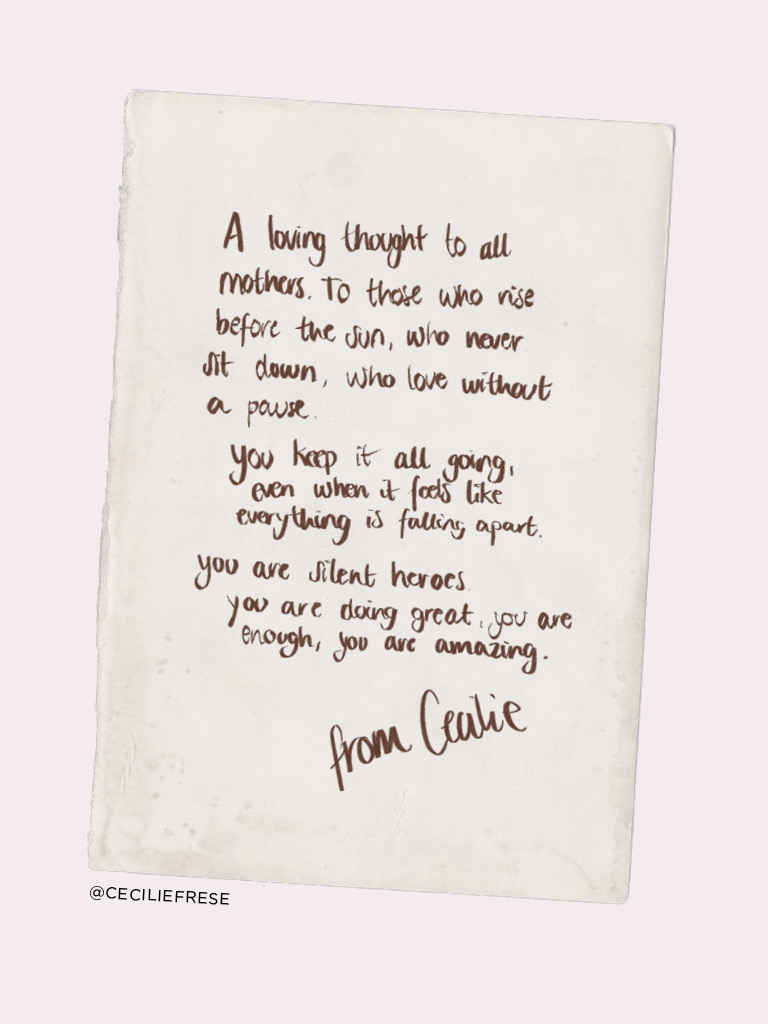 A loving thought to all
mothers. To those who rise
before the sun, who never
sit down, who love without
a pause.
you keep it all going,
even when it feels like
everything is falling apart.
you are silent heroes.
you are doing great, you are
enough, you are amazing.
from Cecilie
@CECILIEFRESE